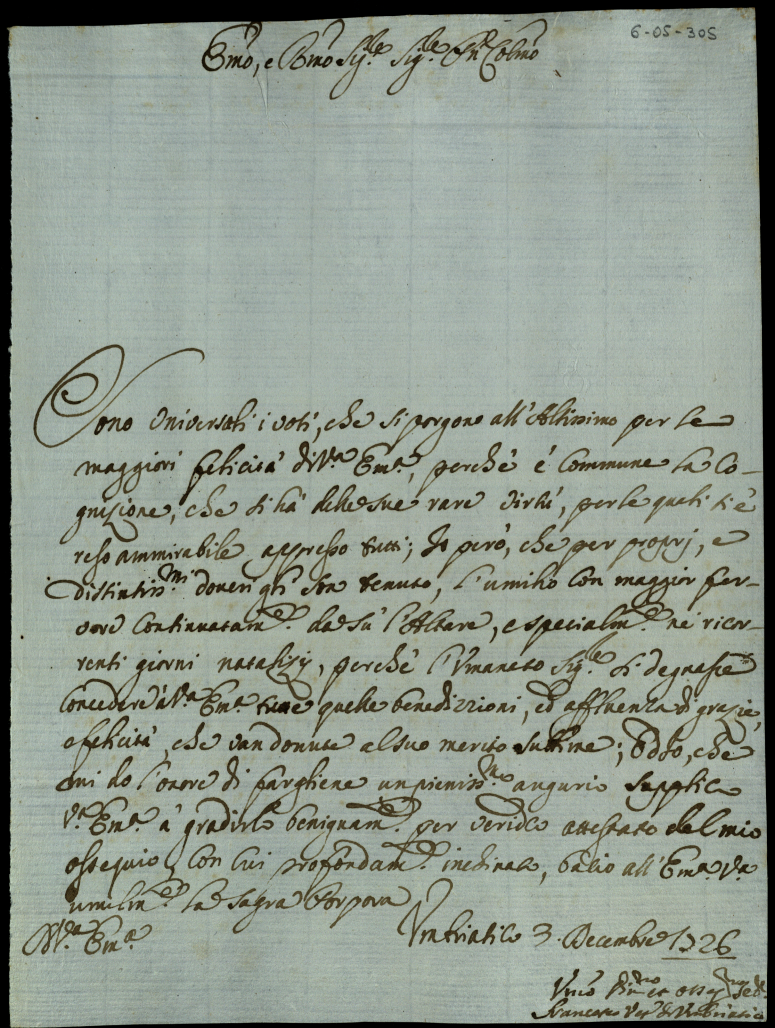 6-05-305
Emo, e Rmo Sig.re Sig.re Pne Colmo
Sono Universali i voti, che si porgono all'Altissimo per le
maggiori felicità di V.ra Em.a, perchè è Commune la Co-
gnizione, che si hà delle sue rare virtù, per le quali si è
reso ammirabile appresso tutti; Io però, che per proprj, e
distintiss.mi doveri gli son tenuto, l'umilio con maggior fer-
vore Continuatam.e da sù l'Altare, e specialm.e nè ricor-
renti giorni natalizij, perchè l'Umanato Sig.re si degnasse
Concedere à V.ra Em.a tutte quelle benedizzioni, ed affluenza di grazie,
e felicità, che van donute al suo merito sublime; Ed Io, che
mi do l'onore di fargliene un pieniss.mo augurio supplico
V.ra Em.a à gradirlo benignam.e per veridico attestato del mio
ossequio, con cui profondam.e inchinato, bacio all'Em.a V.ra
umilm.e la sagra Porpora
D V.ra Em.a Umbriatico 3 Decembre 1726
Francesco Ves.o di Umbriatico